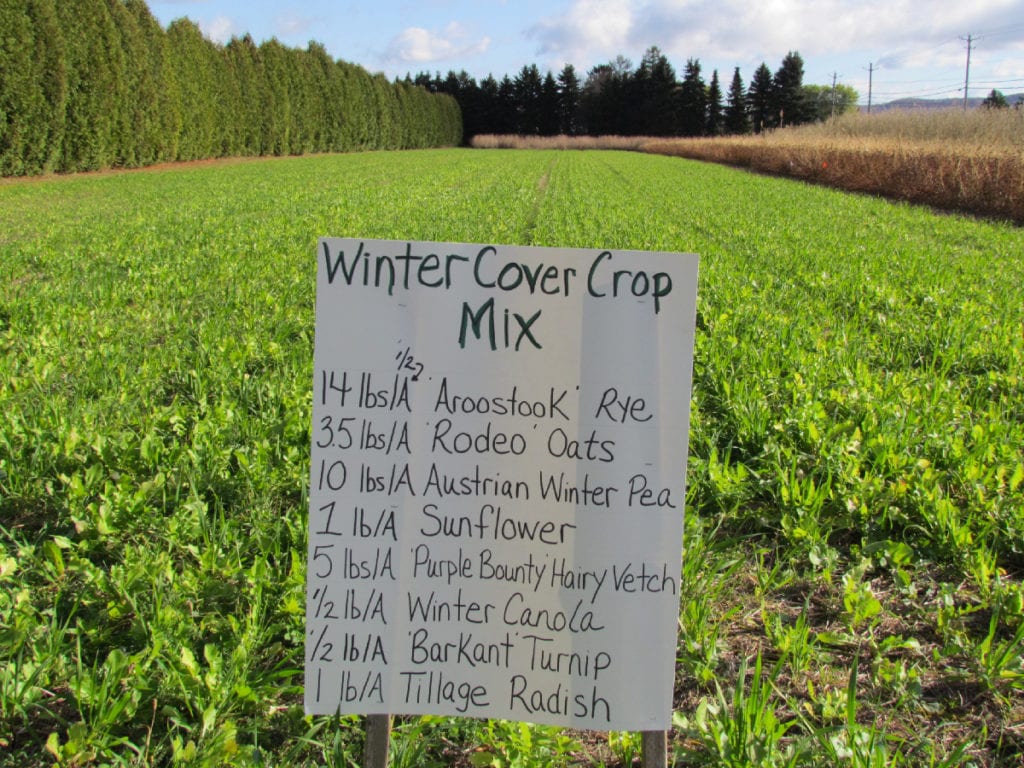 Winter Cover Crop
Mix
14 lbs/A 'Aroostook' Rye
35 lbs/A 'Rodeo' Oats
10 lbs/A Austrian Winter Pea
1 lb/A Sunflower
5 lbs/A 'Purple Bounty' Hairy Vetch
1/2 lb/A Winter Canola
1/2 lb/A 'Barkant' Turnip
1 lb/A Tillage Radish